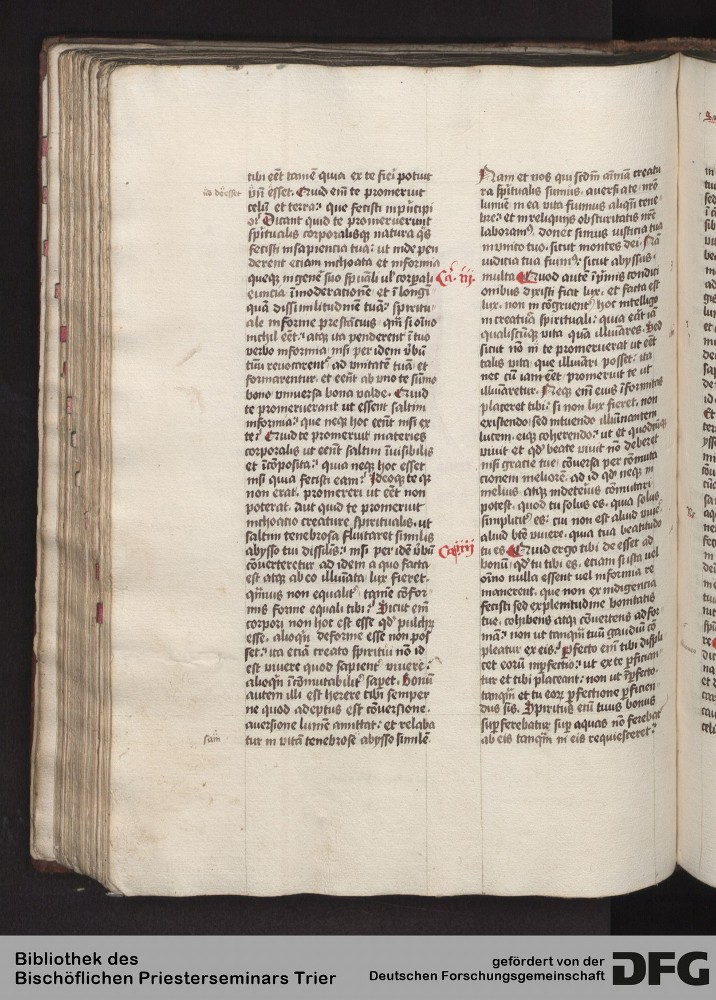 tibi eēt tamē quia ex te fieri potuit
ita deesset
vn̄ eēsset. Quid em̄ te promeruit
celū et terra: que fecisti in pͥncipi
o? Dicant quid te promeruerunt
spūtualis corporalisqȝ natura q̄s
fecisti in sapiencia tua: ut inde pen
derent etiam inchoata et informia
queqȝ in genē suo spūali ul' corpali
euncia ī moderationē et ī longī
quā dissimilitudinem tuā: spiritu
ale informe prestācius qm̄ si oīno
nichil eēt: atqȝ ita penderent ī tuo
verbo informia nisi per idem v̄bū
tuū reuocarent᷑ ad vnitatē tuā et
formarentur et eent ab vno te sūmo
bono vniuersa bona valde. Quid
te promeruerant ut essent saltim
informia: que neqȝ hoc eent nisi ex
te? Quid te promeruit materies
corporalis ut eent saltim īuisibilis
et īcōposita: quia neqȝ hoc esset
nisi quia fecisti eam: Ideoqȝ te qȝ
non erat. promereri ut eēt non
poterat. Aut quid te promeruit
inchoatio creature spiritualis. ut
saltim tenebrosa fluitaret similis
abysso tui dissilis: nisi per idē v̄bū
cōuerteretur ad idem a quo facta
est atqȝ ab eo illuīata lux fieret.
quīuis non equalit᷑ tamē cōfor
mis forme equali tibi: Sicut em̄
corpori non hoc est esse qd' pulchrū
esse. alioqn̄ deforme esse non pos
set: ita etiā creato spiritui nō id
est viuere quod sapient᷑ viuere:
alioqn̄ īcōmutabilit᷑ sapet. Bonū
autem illi est herere tibi semper
ne quod adeptus est cōuersione.
auersione lumē amittat: et relaba
sam̄
tur in vitā tenebrose abysso similē.
Nam et nos qui scdm̄ aīmam creatu
ra spūtualis sumus. auersi a te nr̄o
lumīe in ea vita fuimus aliqn̄ tene
bre: et in reliquijs obscuritatis nr̄e
laboram⁹. donec simus iusticia tua
in vnito tuo. sicut montes dei. Nā
iudicia tua fuim⁹: sicut abyssus
Ca. iij.
multa Quod autē ī pͥmis condici
onibus dixisti fiat lux. et facta est
lux. non incōgruent᷑ hoc intelligo
in creatura spirituali: quia eāt iā
qualiscūqȝ vita quā illuīares. Sed
sicut nō in te promeruerat ut eēt
talis vita que illuīari posset: ita
nec cū iam eēt promeruit te ut
illuīaretur. Neqȝ em̄ eius īformitas
placeret tibi: si non lux fieret. non
existendo sed intuendo illuīnantem
lucem. eiqȝ coherendo: ut et quodcūqȝ
viuit et qd' beate viuit nō deberet
nisi gracie tue: cōuersa per cōmuta
cionem meliorē. ad id qd' neqȝ in
melius atqȝ in deterius cōmutari
potest. quod tu solus es. quia solus
simplicit᷑ es: cui non est aliud viue
aliud btē viuere. quia tua beatitudo
Ca. iiij
tu es. Quid ergo tibi deesset ad
bonū: qd' tu tibi es. etiam si ista vel
oīno nulla essent vel informia re
manerent. que non ex indigencia
fecisti sed ex plenitudine bonitatis
tue. cohibens atqȝ cōuertens ad for
mā: non ut tanqm̄ tuū gaudiū cō
pleatur ex eis: Perfecto em̄ tibi displi
cet eorū imꝑfectio: ut ex te ꝑfician
tur et tibi placeant: non ut īꝑfecto
tanqm̄ et tu eorū ꝑfectione ꝑficien
dus sis. Spiritus em̄ tuus bonus
suꝑferebatur suꝑ aquas nō ferebat᷑
ab eis tanqm̄ in eis requiesceret:
Bibliothek des
Bischöflichen Priesterseminars Trier
gefördert von der
Deutschen Forschungsgemeinschaft
DFG